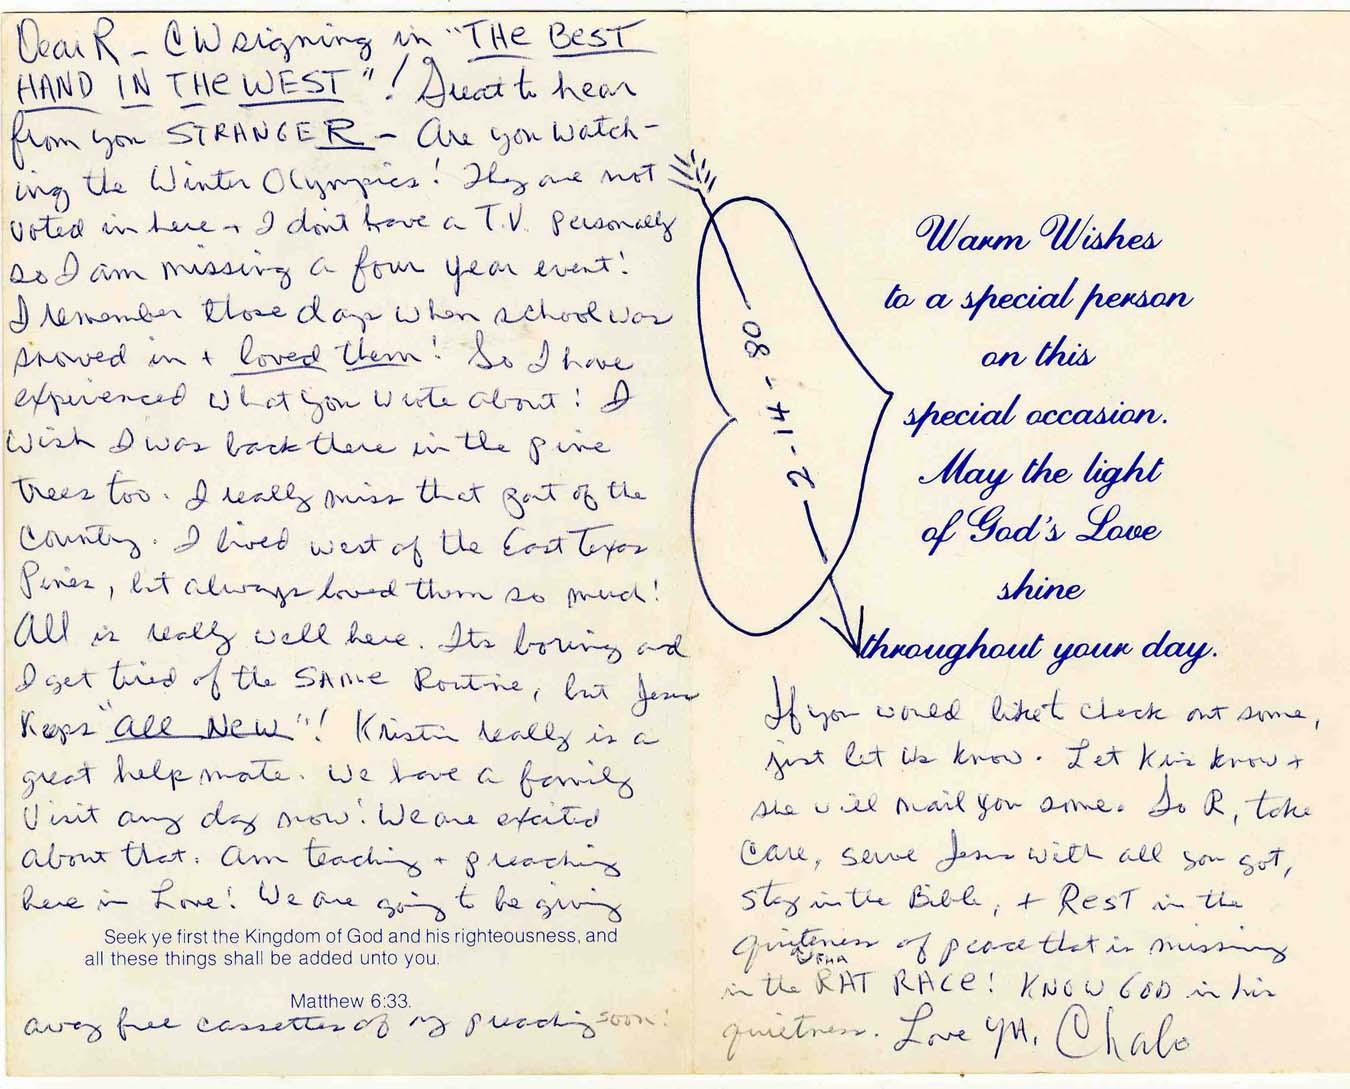 Dear R - CW signing in "THE BEST
HAND IN THE WEST"! Great to hear
from you STRANGER - Are you watch-
ing the Winter Olympics! They are not
voted in here + I don't have a T.V. personally
so I am missing a four year event!
I remember those days when school was
snowed in + loved them! So I have
experienced what you wrote about! I
wish I was back there in the pine
trees too. I really miss that part of the
Country. I lived west of the East Texas
Pines, but always loved them so much!
All is really well here. Its boring and
I get tired of the SAME Routine, but Jesus
Keeps "All New"! Kristin really is a
great help mate. We have a family
Visit any day now! We are excited
about that. Am teaching + preaching
here in Love! We are going to be giving
Seek ye first the Kingdom of God and his righteousness, and
all these things shall be added unto you.
Matthew 6:33.
away free cassettes of my preaching soon!
2-14-80
Warm Wishes
to a special person
on this
special occasion.
May the light
of God's Love
shine
throughout your day.
If you would like t check out some,
just let us know. Let Kris know +
she will mail you some. So R, take
care, serve Jesus with all you got,
stay in the Bible, + REST in the
quiteness of peace that is missing
in the RAT RACE! KNOW GOD in his
quietness. Love YA,